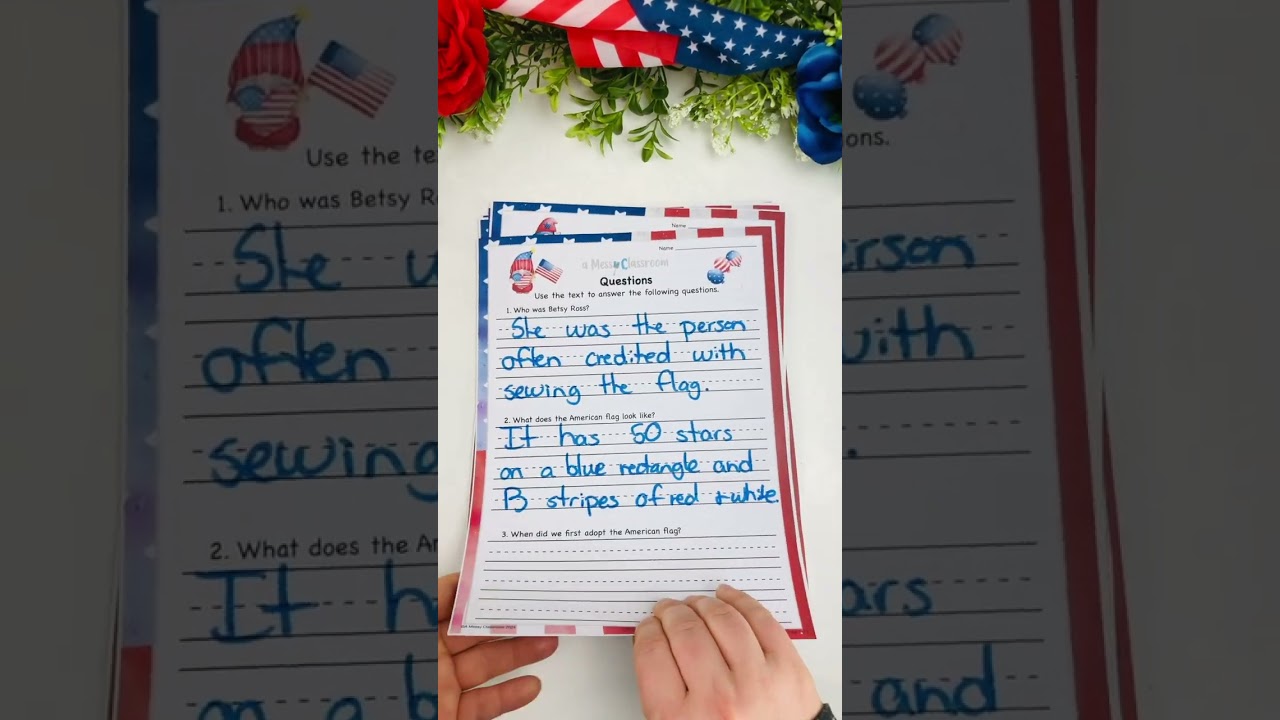 Name
Name
a Messy Classroom
Questions
Use the text to answer the following questions.
1. Who was Betsy Ross?
She was the person
often credited with
sewing the flag.
2. What does the American flag look like?
It has 50 stars
on a blue rectangle and
13 stripes of red + white.
3. When did we first adopt the American flag?
Use the te
ons.
1. Who was Betsy R
She w
erson
often
with
sewing
2. What does the Am
It h
ars
on a b
and